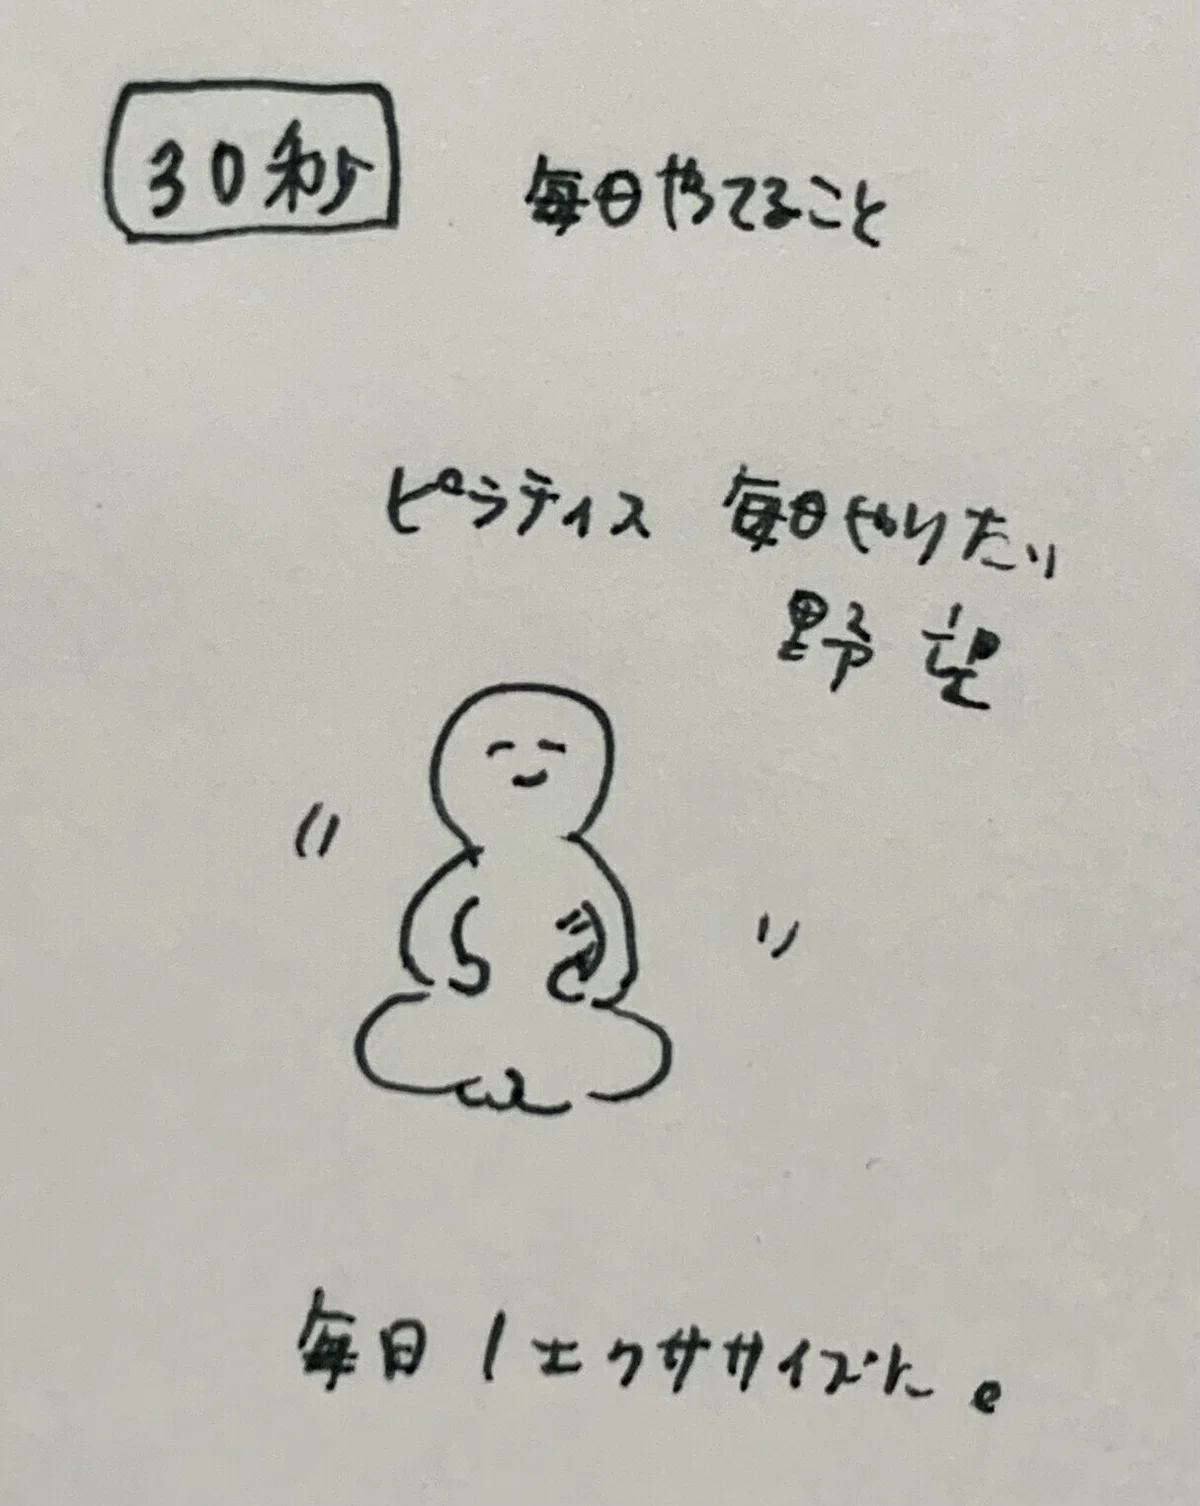 30秒
毎日やってること
ピラティス 毎日やりたい
野望
毎日1エクササイズだ。